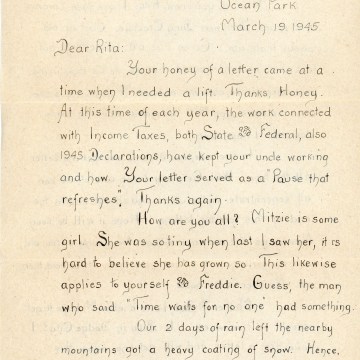 Ocean Park
March 19, 1945.
Dear Rita:
Your honey of a letter came at a
time when I needed a lift. Thanks, Honey.
At this time of each year, the work connected
with Income Taxes, both State & Federal, also
1945 Declarations, have kept your uncle working
and how. Your letter served as a "Pause that
refreshes". Thanks again.
How are you all? Mitzie is some
girl. She was so tiny when last I saw her, it is
hard to believe she has grown so. This likewise
applies to yourself & Freddie. Guess, the man
who said "Time waits for no one" had something.
Our 2 days of rain left the nearby
mountains got a heavy coating of snow. Hence,